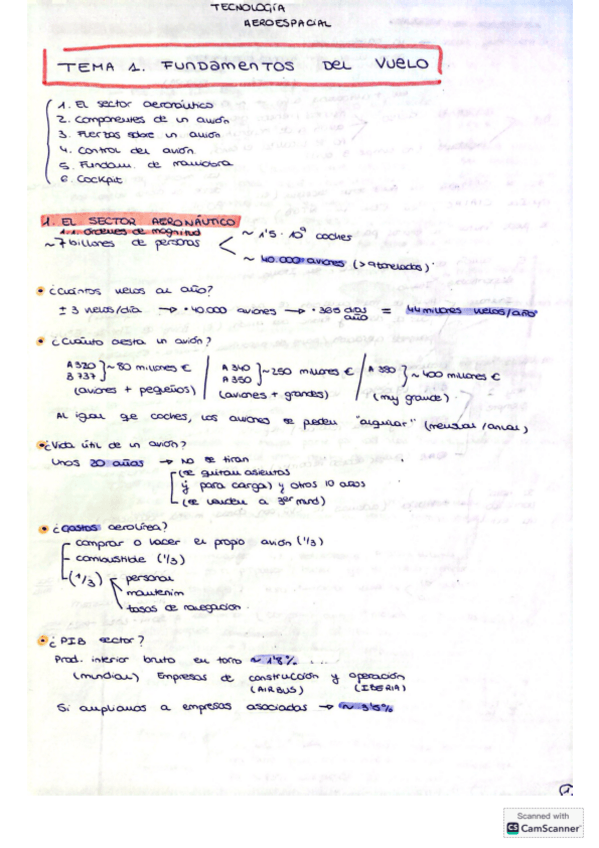 TECNOLOGÍA
AEROESPACIAL
TEMA 1. FUNDAMENTOS DEL VUELO
1. El sector aeronáutico
2. Componentes de un avión
3. Fuerzas sobre un avión
4. Control del avión
5. Fundam. de maniobra
6. Cockpit
1. EL SECTOR AERONÁUTICO
1.1. Órdenes de magnitud
~ 7 billones de personas
~ 1'5 · 10⁹ coches
~ 40.000 aviones (> 9 toneladas)
¿Cuántos vuelos al año?
± 3 vuelos/día → · 40000 aviones → · 365 días/año = 44 millones vuelos/año
¿Cuánto cuesta un avión?
A320 B737 } ~ 80 millones € / A340 A350 } ~ 250 millones € / A380 } ~ 400 millones €
(aviones + pequeños) (aviones + grandes) (muy grande)
Al igual que coches, los aviones se pueden "alquilar" (mensual/anual)
¿Vida útil de un avión?
Unos 20 años → NO se tiran
(se quitan asientos
y para carga) y otros 10 años
(se venden a 3er mund)
¿Gastos aerolínea?
comprar o hacer el propio avión (1/3)
combustible (1/3)
(1/3) personal
mantenim
tasas de navegación
¿PIB sector?
Prod. interior bruto en torno ~ 1'8%
(mundial) Empresas de construcción y operación
(AIRBUS) (IBERIA)
Si ampliamos a empresas asociadas → ~ 3'5%
1.
Scanned with
CS CamScanner